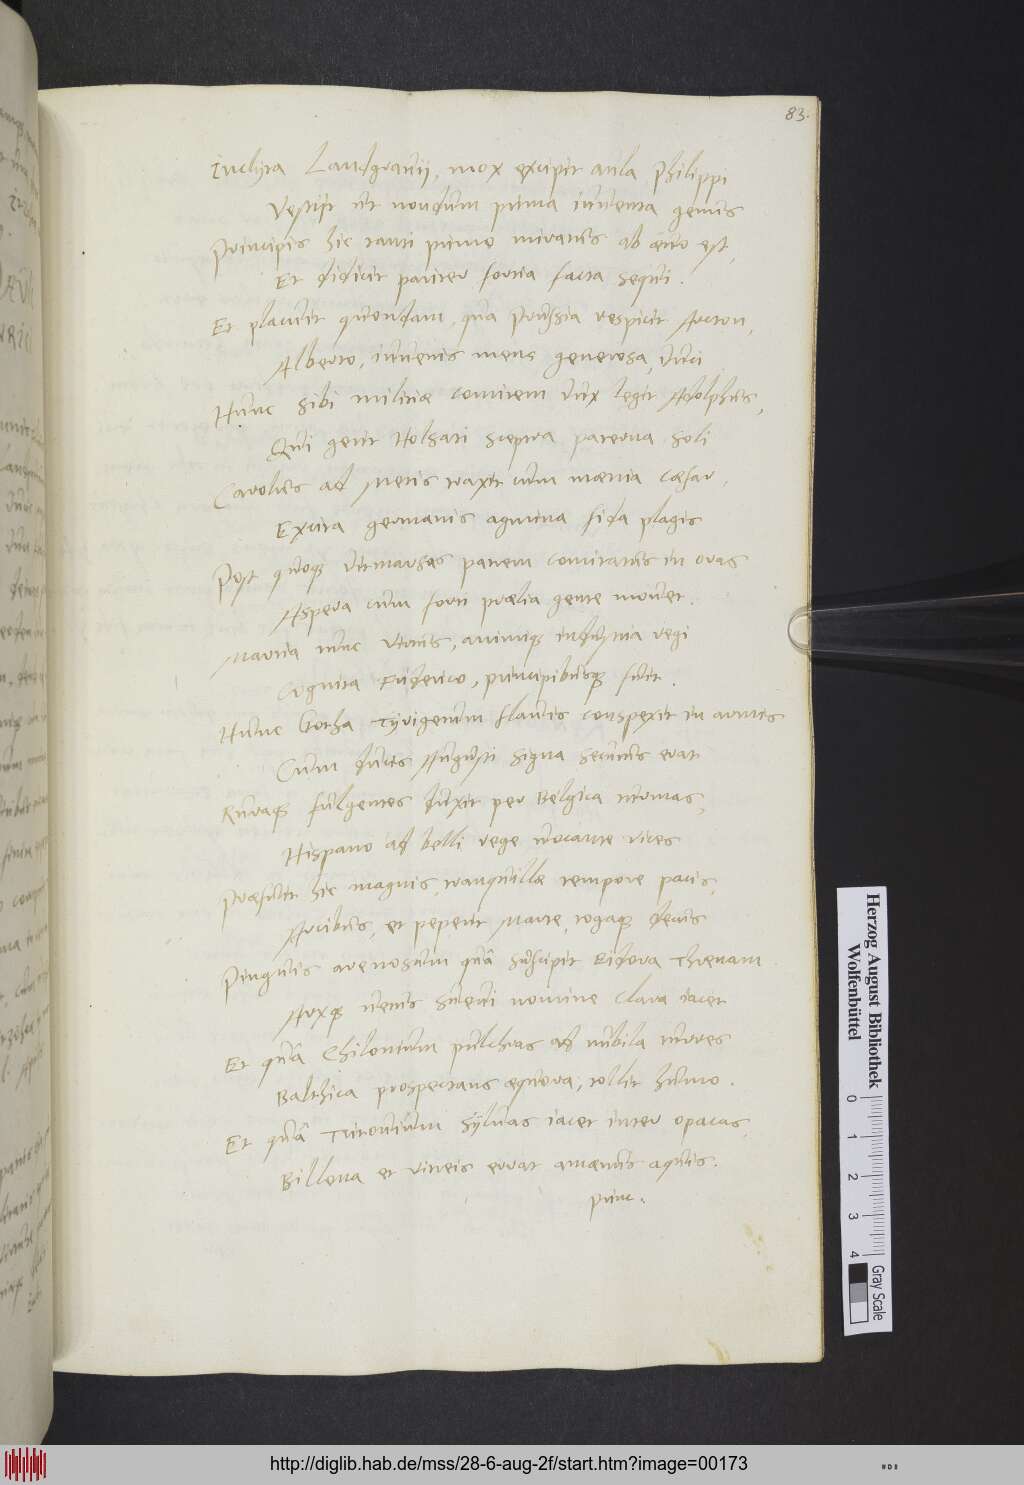 83.
Inclyta Landgravij, mox excipit aula Philippi
Vestijt ut nondum prima iuventa genas
Principis hic tanti primo miratus ab aevo est,
Et didicit pariter fortia facta sequi.
Et placuit quondam, qua Prussia respicit Arcton,
Alberto, iuvenis mens generosa, duci
Hunc sibi militiae comitem dux legit Adolphus,
Qui gerit Holsati sceptra paterna soli
Carolus ad Metis traxit cum maenia Caesar,
Excita germanis agmina fida plagis
Post quoq. Ditmarsas patrem comitatus in oras
Aspera cum forti praelia gente movet.
Martia nunc virtus, animiq. industria regi
Cognita Friderico, principibusq. fuit.
Hunc Gotha Tyrigenum flavis conspexit in armis
Cum ducis Augusti signa secutus erat
Rursq. fulgentes duxit per Belgica turmas,
Hispano ad belli rege vocante vices
Praefuit hic magnis, tranquillae tempore pacis,
Arcibus, et peperit Marte, togaq. decus
Pinguis arenosum quâ suscipit Eidora Threnam
Arxq. vetus Suevi nomine clara iacet
Et quâ Chilonium pulchras ad nubila turres
Balthica prospectans aequora, tollit humo.
Et quâ Tritonium sylvas iacet inter opacas,
Billena et vitreis errat amaenus aquis.
Herzog August Bibliothek
Wolfenbüttel
0 1 2 3 4
Gray Scale
http://diglib.hab.de/mss/28-6-aug-2f/start.htm?image=00173